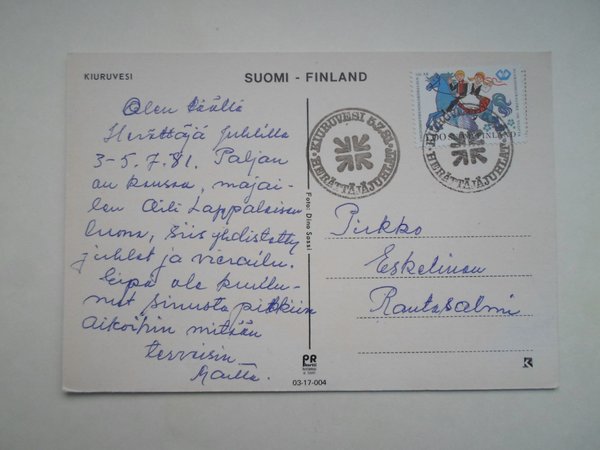 KIURUVESI
SUOMI - FINLAND
Olen täällä
Herättäjä juhlilla
3-5.7.81. Paljon
on kansaa, majai-
len Aili Lappalaisen
luona, siis yhdistetty
juhlat ja vierailu.
Eipä ole kuullu-
nut sinusta pitkiin
aikoihin mitään
terveisin
Foto: Dino Sassi
PR
03-17-004
KIURUVESI 5.7.81
HERÄTTÄJÄJUHLAT
FINLAND
KIURUVESI
HERÄTTÄJÄJUHLAT
Pirkko
Eskelinen
Rantasalmi